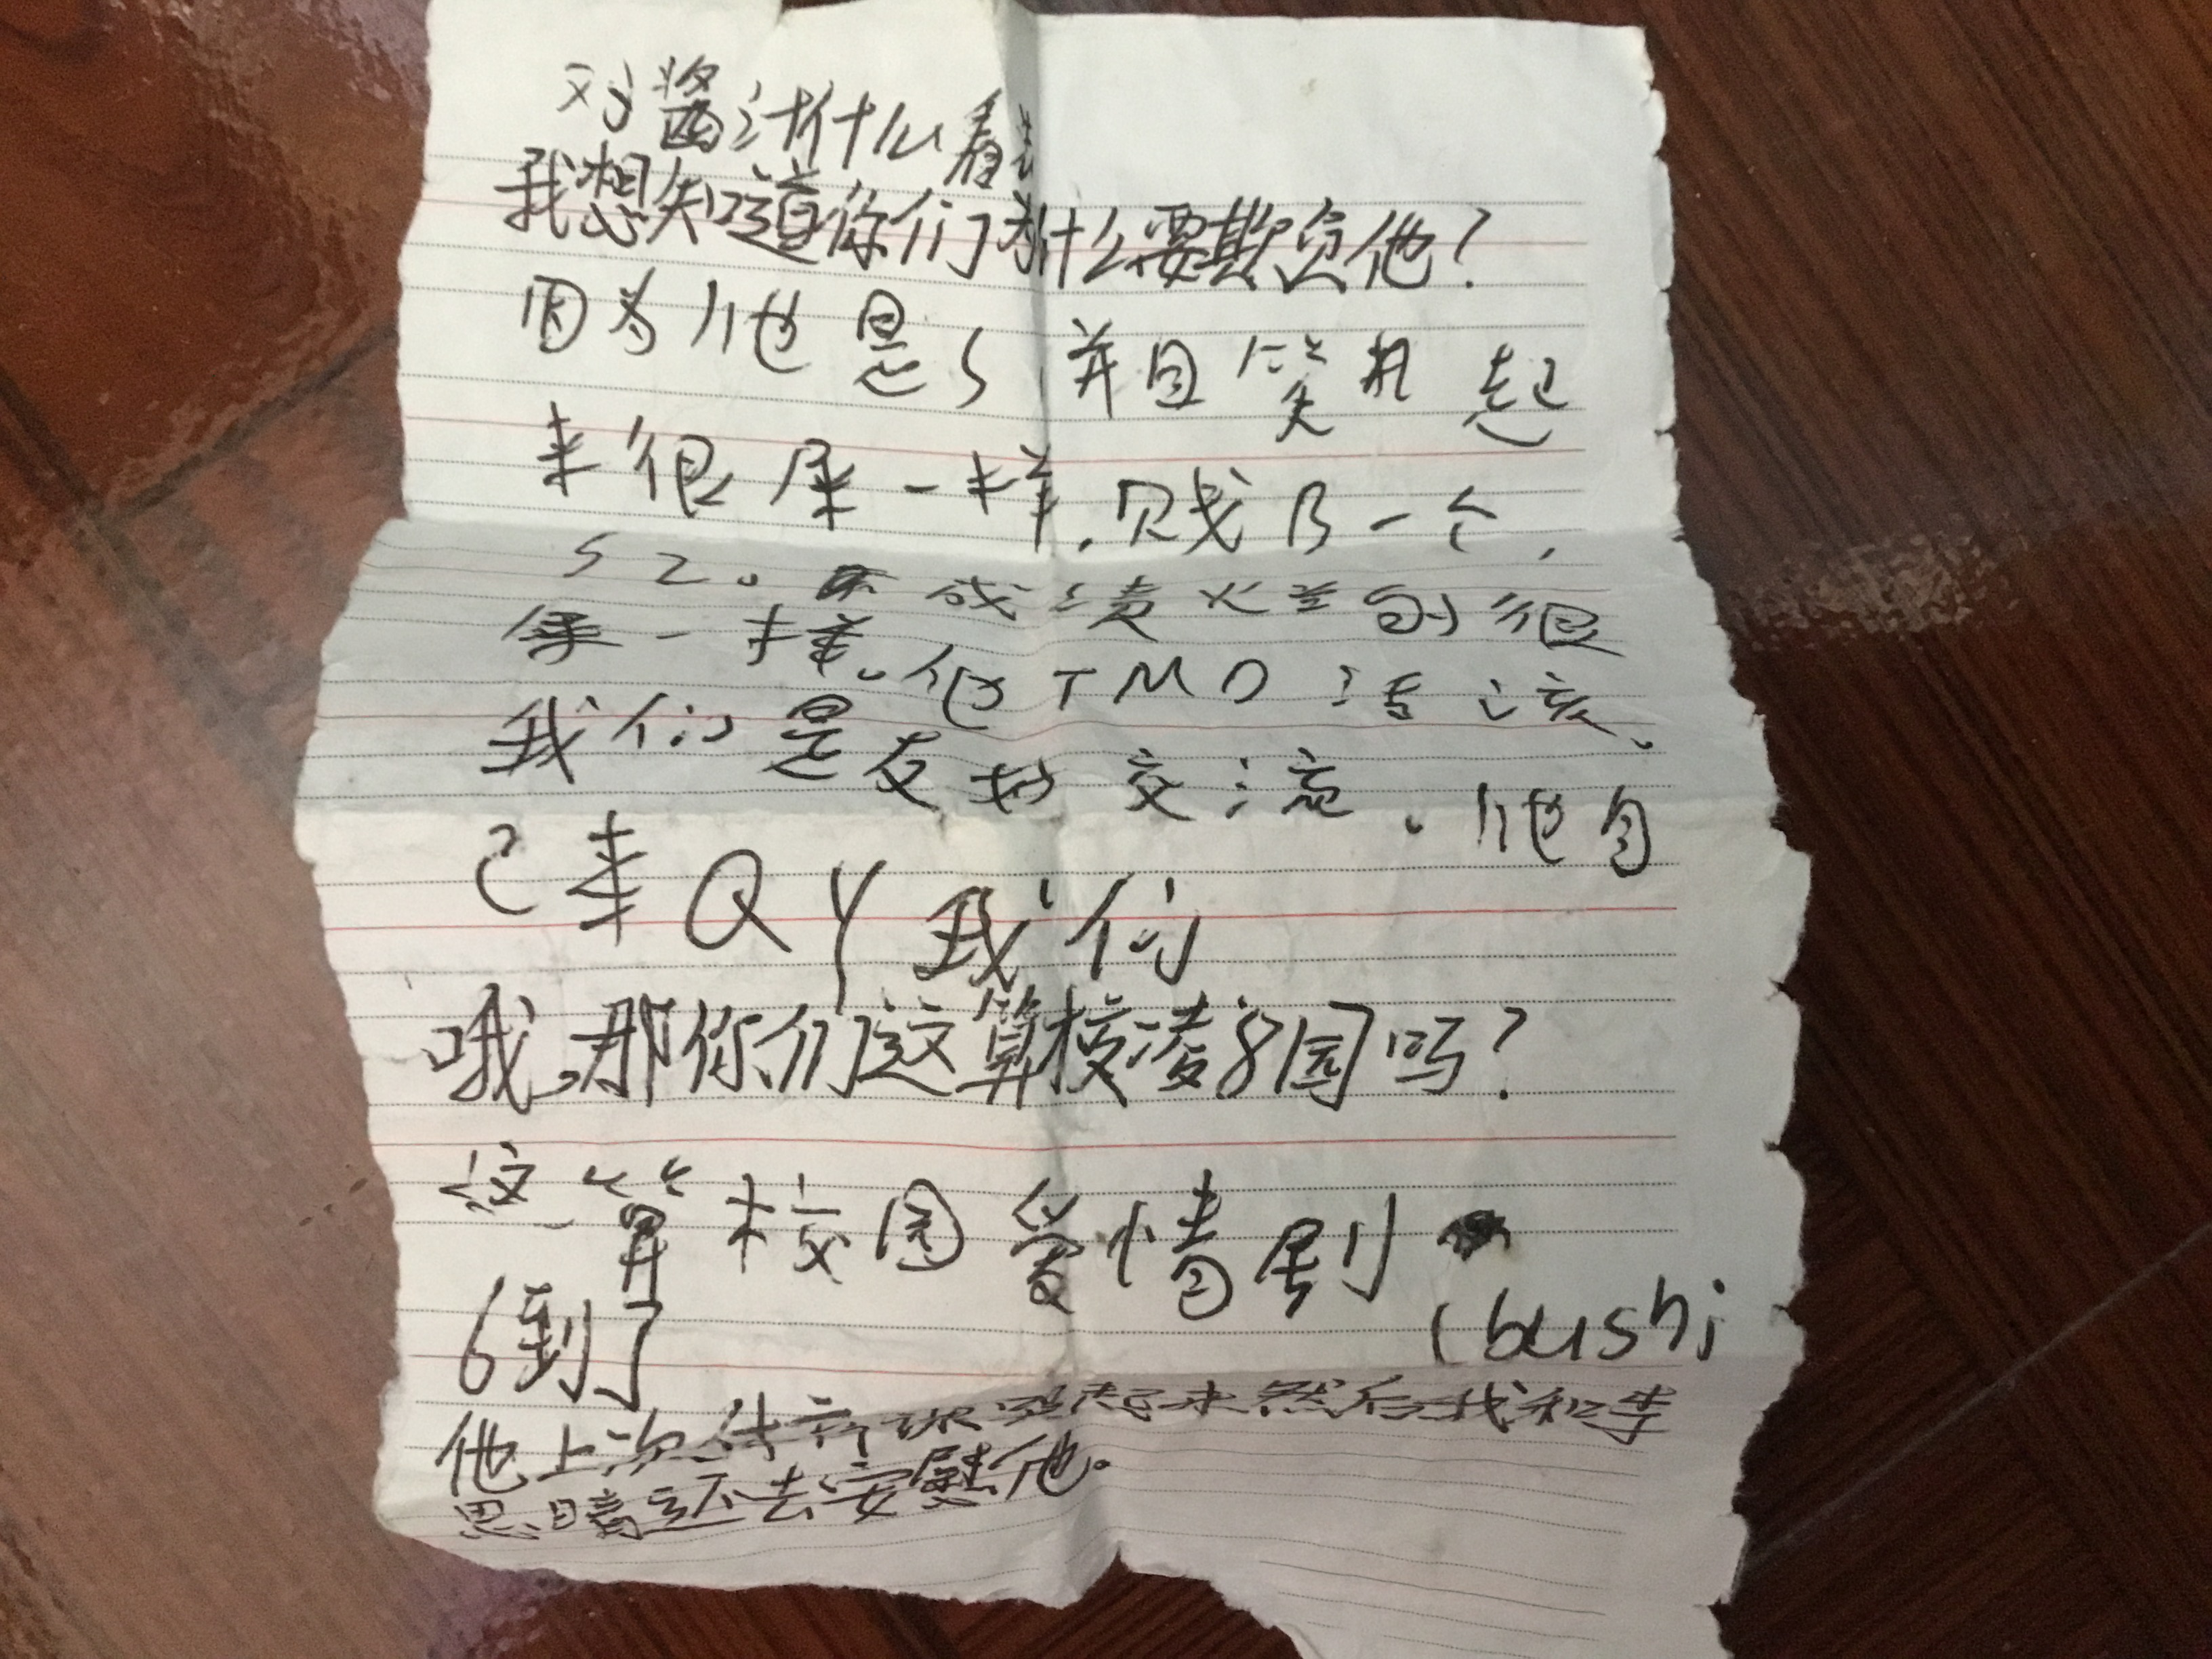 对酱汁什么看法
我想知道你们为什么要欺负他?
因为他是S 并且笑 起
来很屎一样.贱B一个,
SZ。 成绩 的很
屎一样。他TMD活该。
我们是友好交流.他自
己来QY我们
哦,那你们这算校凌8园吗?
这算校园爱情剧
(bushi
6到了
他上次体育课哭起来然后我和李
思晴还去安慰他。